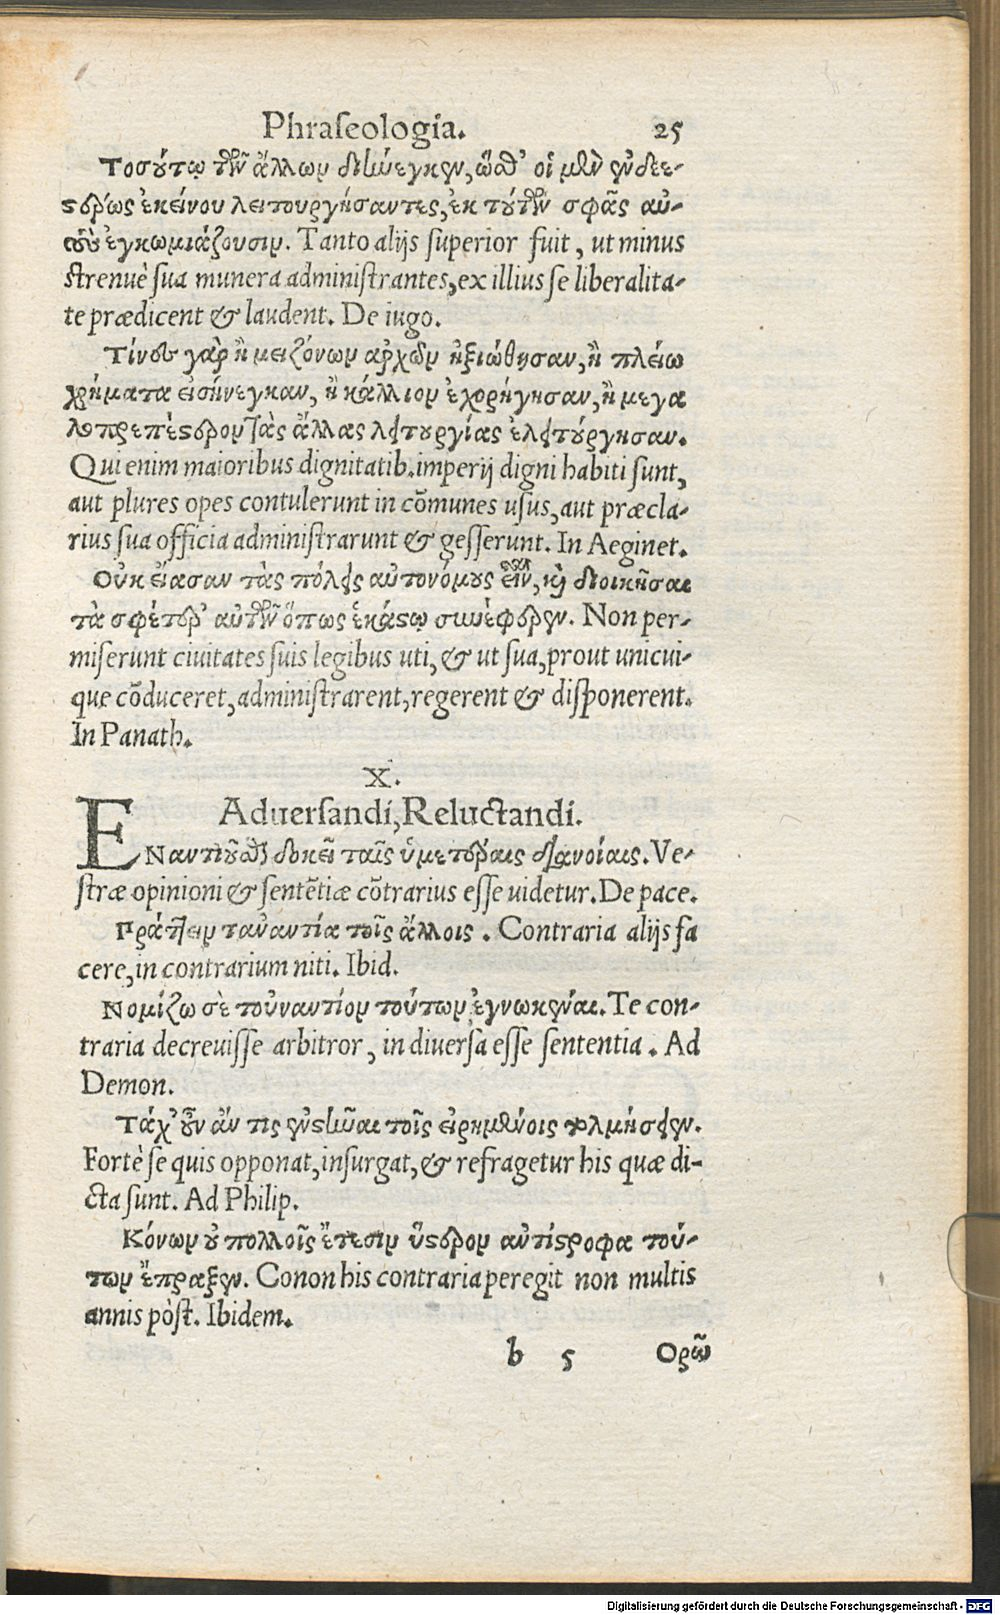 Phraseologia. 25
Τοσούτῳ τῶν ἄλλων διήνεγκεν, ὥσθ' οἱ μὲν ἐνδεε-
στέρως ἐκείνου λειτουργήσαντες, ἐκ τούτων σφᾶς αὐ-
τοὺς ἐγκωμιάζουσιν. Tanto alijs superior fuit, ut minus
strenuè sua munera administrantes, ex illius se liberalita-
te prædicent & laudent. De iugo.
Τίνες γὰρ ἢ μειζόνων ἀρχῶν ἠξιώθησαν, ἢ πλείω
χρήματα εἰσήνεγκαν, ἢ κάλλιον ἐχορήγησαν, ἢ μεγα
λοπρεπέστερον τὰς ἄλλας λειτουργίας ἐλειτούργησαν.
Qui enim maioribus dignitatib. imperij digni habiti sunt,
aut plures opes contulerunt in cōmunes usus, aut præcla-
rius sua officia administrarunt & gesserunt. In Aeginet.
Οὐκ εἴασαν τὰς πόλεις αὐτονόμους εἶναι, καὶ διοικῆσαι
τὰ σφέτερ' αὐτῶν ὅπως ἑκάστῳ συνέφερεν. Non per-
miserunt civitates suis legibus uti, & ut sua, prout unicui-
que cōduceret, administrarent, regerent & disponerent.
In Panath.
X.
Adversandi, Reluctandi.
ΕΝαντιοῦσθαι δοκεῖ ταῖς ὑμετέραις διανοίαις. Ve-
stræ opinioni & sentētiæ cōtrarius esse uidetur. De pace.
Πράττειν ταναντία τοῖς ἄλλοις. Contraria alijs fa
cere, in contrarium niti. Ibid.
Νομίζω σὲ τοὐναντίον τούτων ἐγνωκέναι. Te con-
traria decrevisse arbitror, in diversa esse sententia. Ad
Demon.
Τάχ' οὖν ἄν τις ἐνστῆναι τοῖς εἰρημένοις τολμήσειεν.
Fortè se quis opponat, insurgat, & refragetur his quæ di-
cta sunt. Ad Philip.
Κόνων οὐ πολλοῖς ἔτεσιν ὕστερον ἀντίστροφα τού-
των ἔπραξεν. Conon his contraria peregit non multis
annis pòst. Ibidem.
b 5 Ορῶ
Digitalisierung gefördert durch die Deutsche Forschungsgemeinschaft - DFG